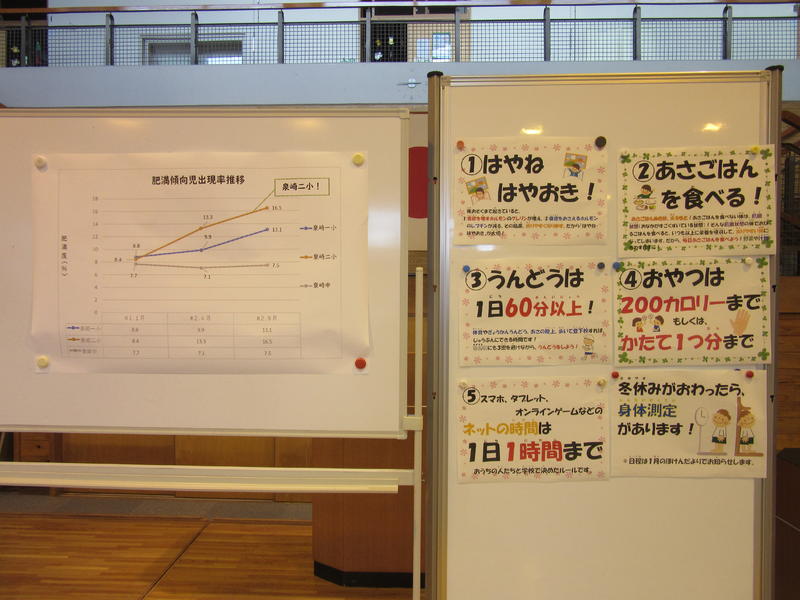 肥満傾向児出現率推移
泉崎二小！
肥満度(%)
18
16
14
12
10
8
6
4
2
0
16.5
13.3
13.1
9.9
8.6
8.4
7.7
7.1
7.5
泉崎一小
泉崎二小
泉崎中
泉崎一小 8.6 9.9 13.1
泉崎二小 8.4 13.3 16.5
泉崎中 7.7 7.1 7.5
①はやね
はやおき！
②あさごはん
を食べる！
③うんどうは
1日60分以上！
体育やぎょうかんうんどう、あさの陸上、歩いて登下校すれば、
じゅうぶんにできる時間です！
④おやつは
200カロリーまで
もしくは、
かたて1つ分まで
⑤スマホ、タブレット、
オンラインゲームなどの
ネットの時間は
1日1時間まで
おうちの人たちと学校で決めたルールです。
冬休みがおわったら、
身体測定
があります！
日程は1月のほけんだよりでお知らせします。